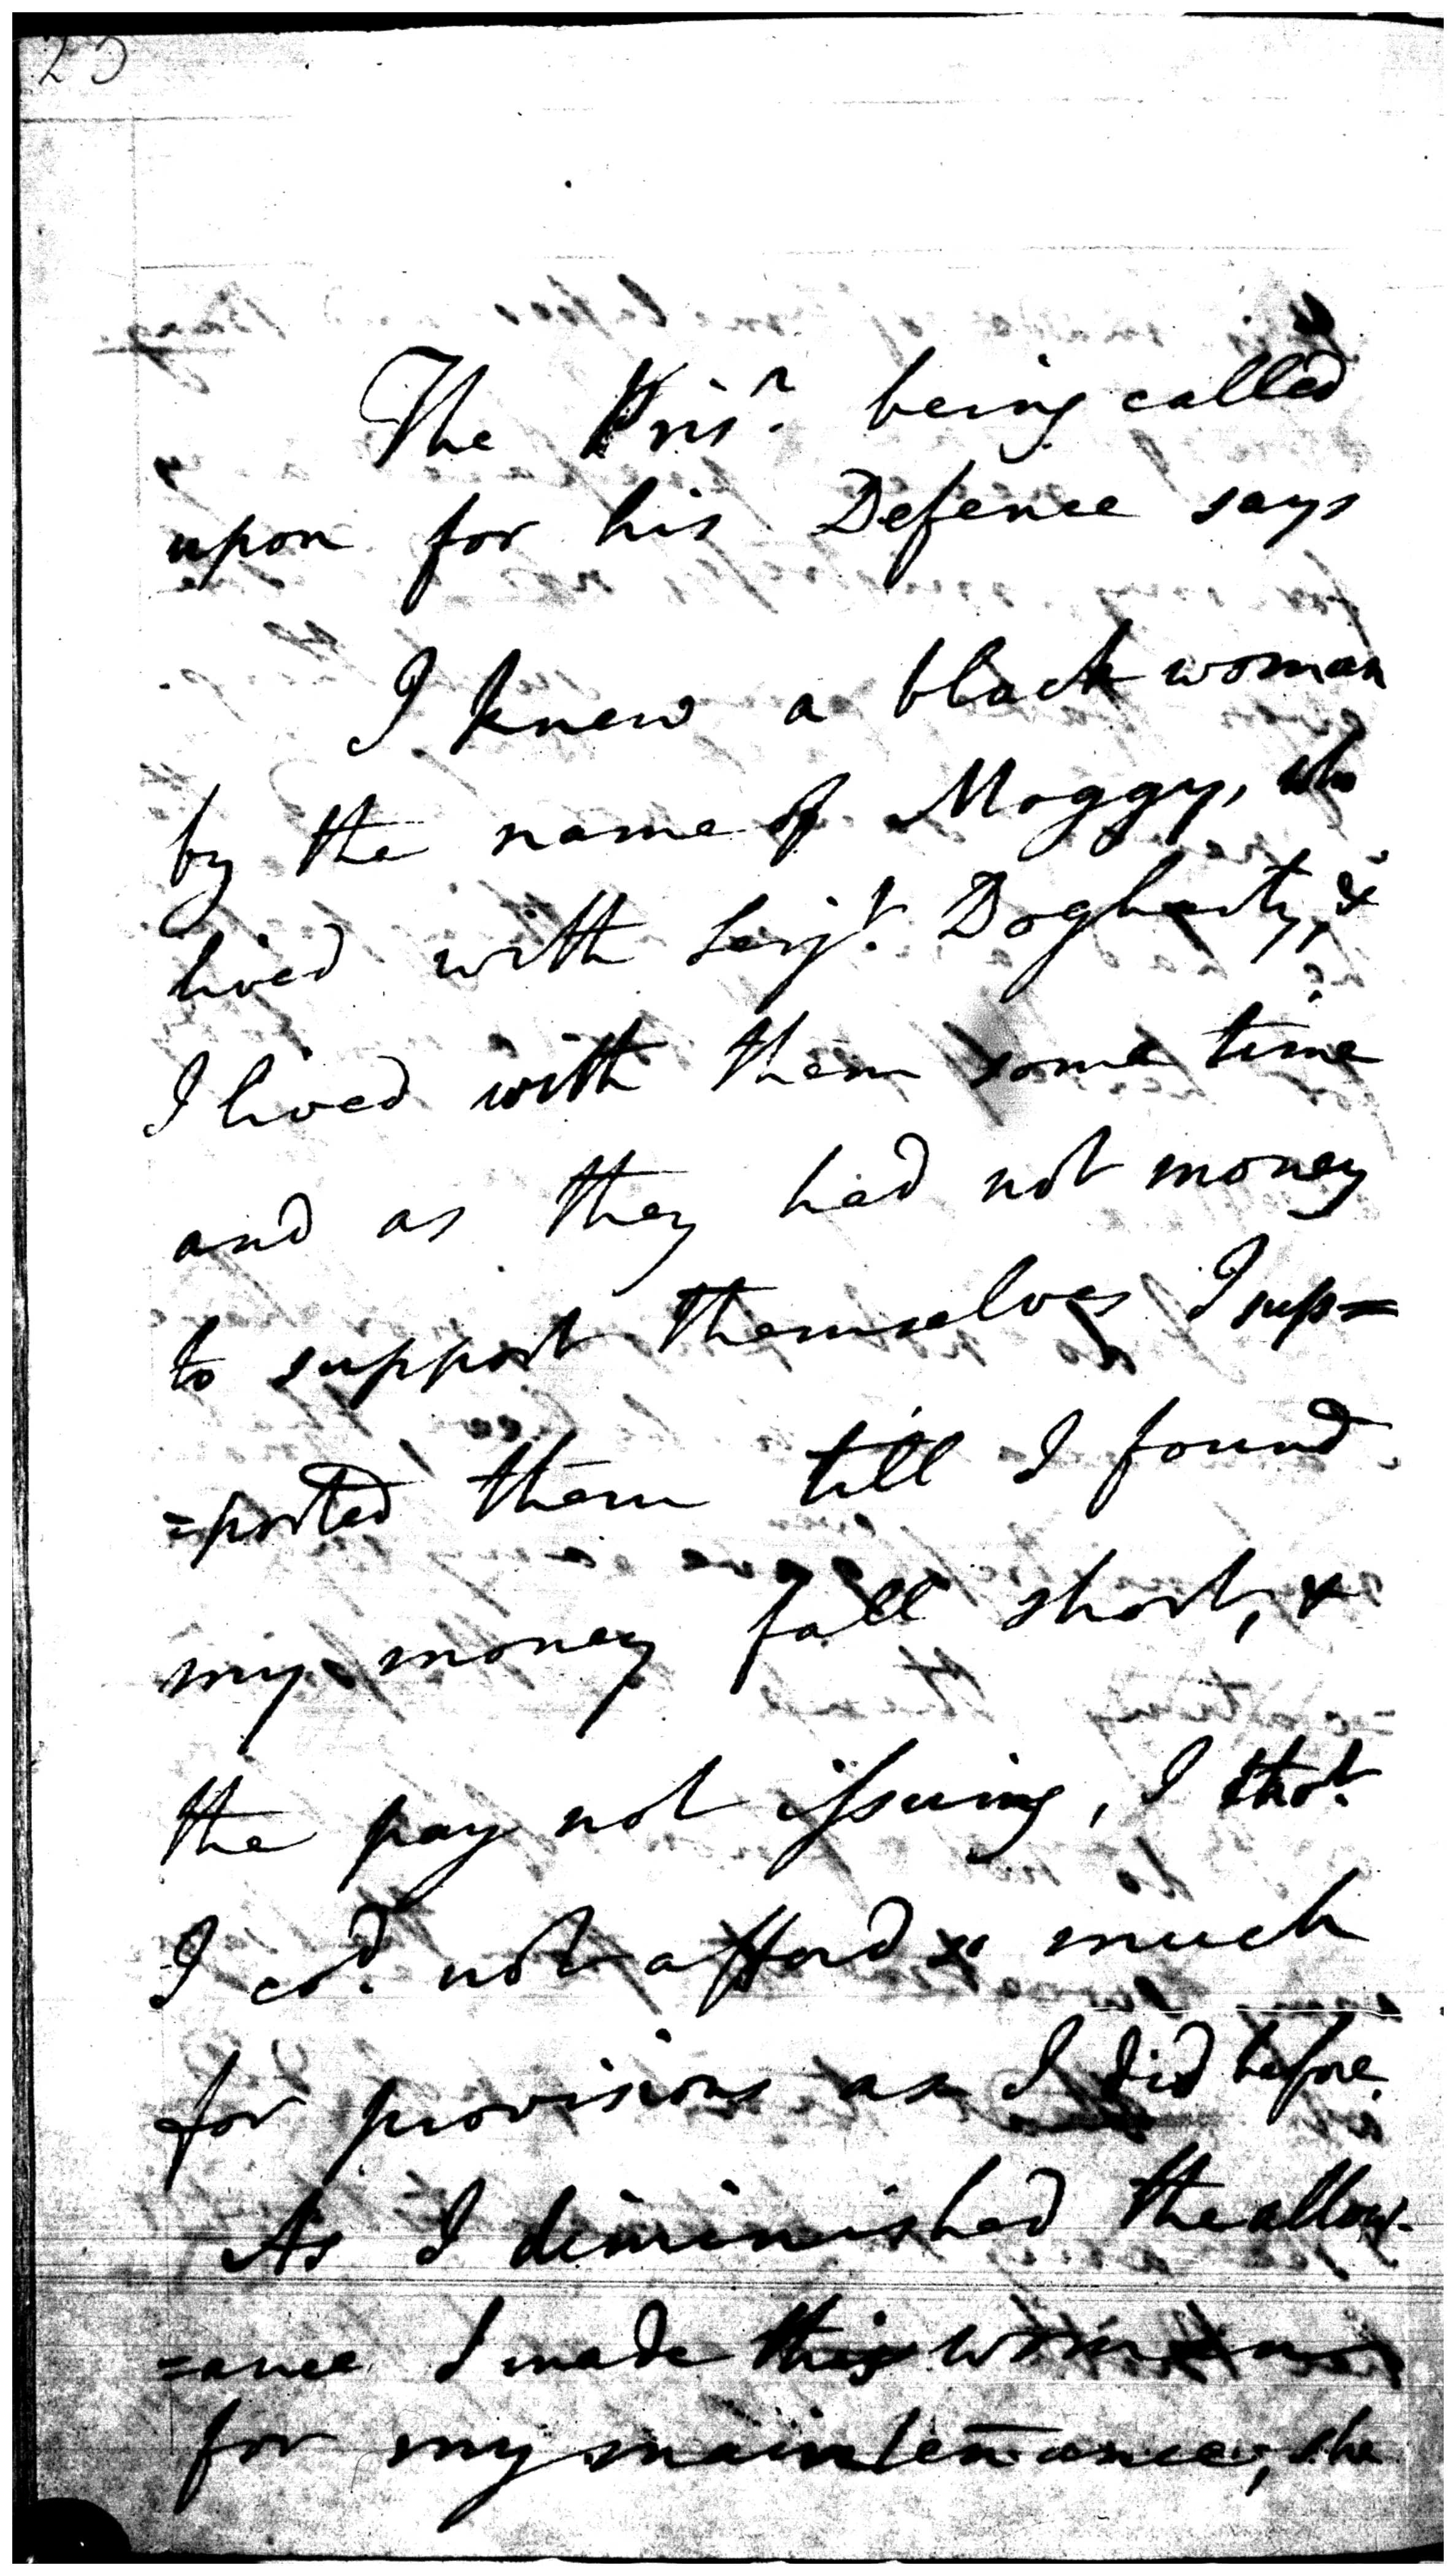 25
The Prisr. being called
upon for his Defence says
I knew a black woman
by the name of Moggy, who
lived with Serjt. Dogharty, &
I lived with them some time
and as they had not money
to support themselves I sup=
=ported them till I found
my money fall short, &
the pay not issuing, I thot.
I cod. not afford so much
for provisions as I did before.
As I diminished the allow-
=ance I made this woman
for my maintenance, she